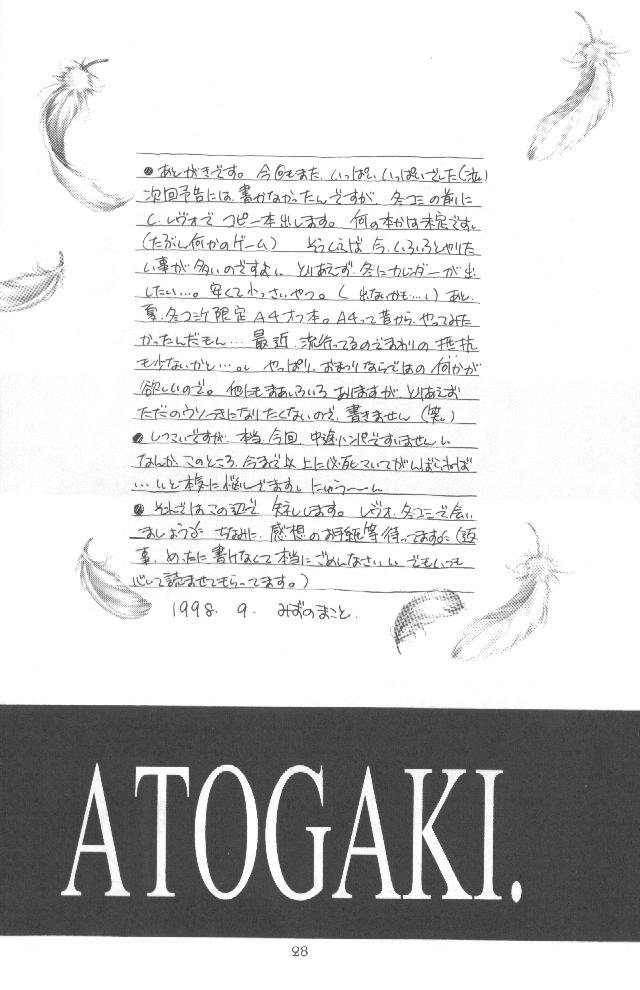 ●あとがきです。今回もまた、いっぱいいっぱいでした(泣)
次回予告には、書かなかったんですが、冬コミの前に
C.レヴォで コピー本出します。何の本かは未定です。
(たぶん何かのゲーム) そういえば 今、いろいろとやりた
い事が多いのですよ。とりあえず、冬にカレンダーが出
したい…。安くて小っさいやつ。( 出ないかも…。) あと、
夏、冬コミケ限定 A4オフ本。A4って昔から、やってみた
かったんだもん… 最近、流行ってるのでまわりの 抵抗
も少ないかと…。 やっぱり、おまつりならではの 何かが
欲しいので。他にもまあいろいろ ありますが、とりあえず
ただのウソつきになりたくないので、書きません(笑)
●しつこいですが、本当、今回、中途ハンパですいません
なんか、このところ、今まで以上に必死こいてがんばらねば
…。と本気に悩んでます。にゅう〜〜ん
●それではこの辺で、失礼します。レヴォ、冬コミで会い
ましょう ちなみに、感想のお手紙等待ってます(返
事、めったに書けなくて本当にごめんなさい でもいつも
心して読ませてもらってます。)
1998. 9. みずのまこと.
ATOGAKI.
28